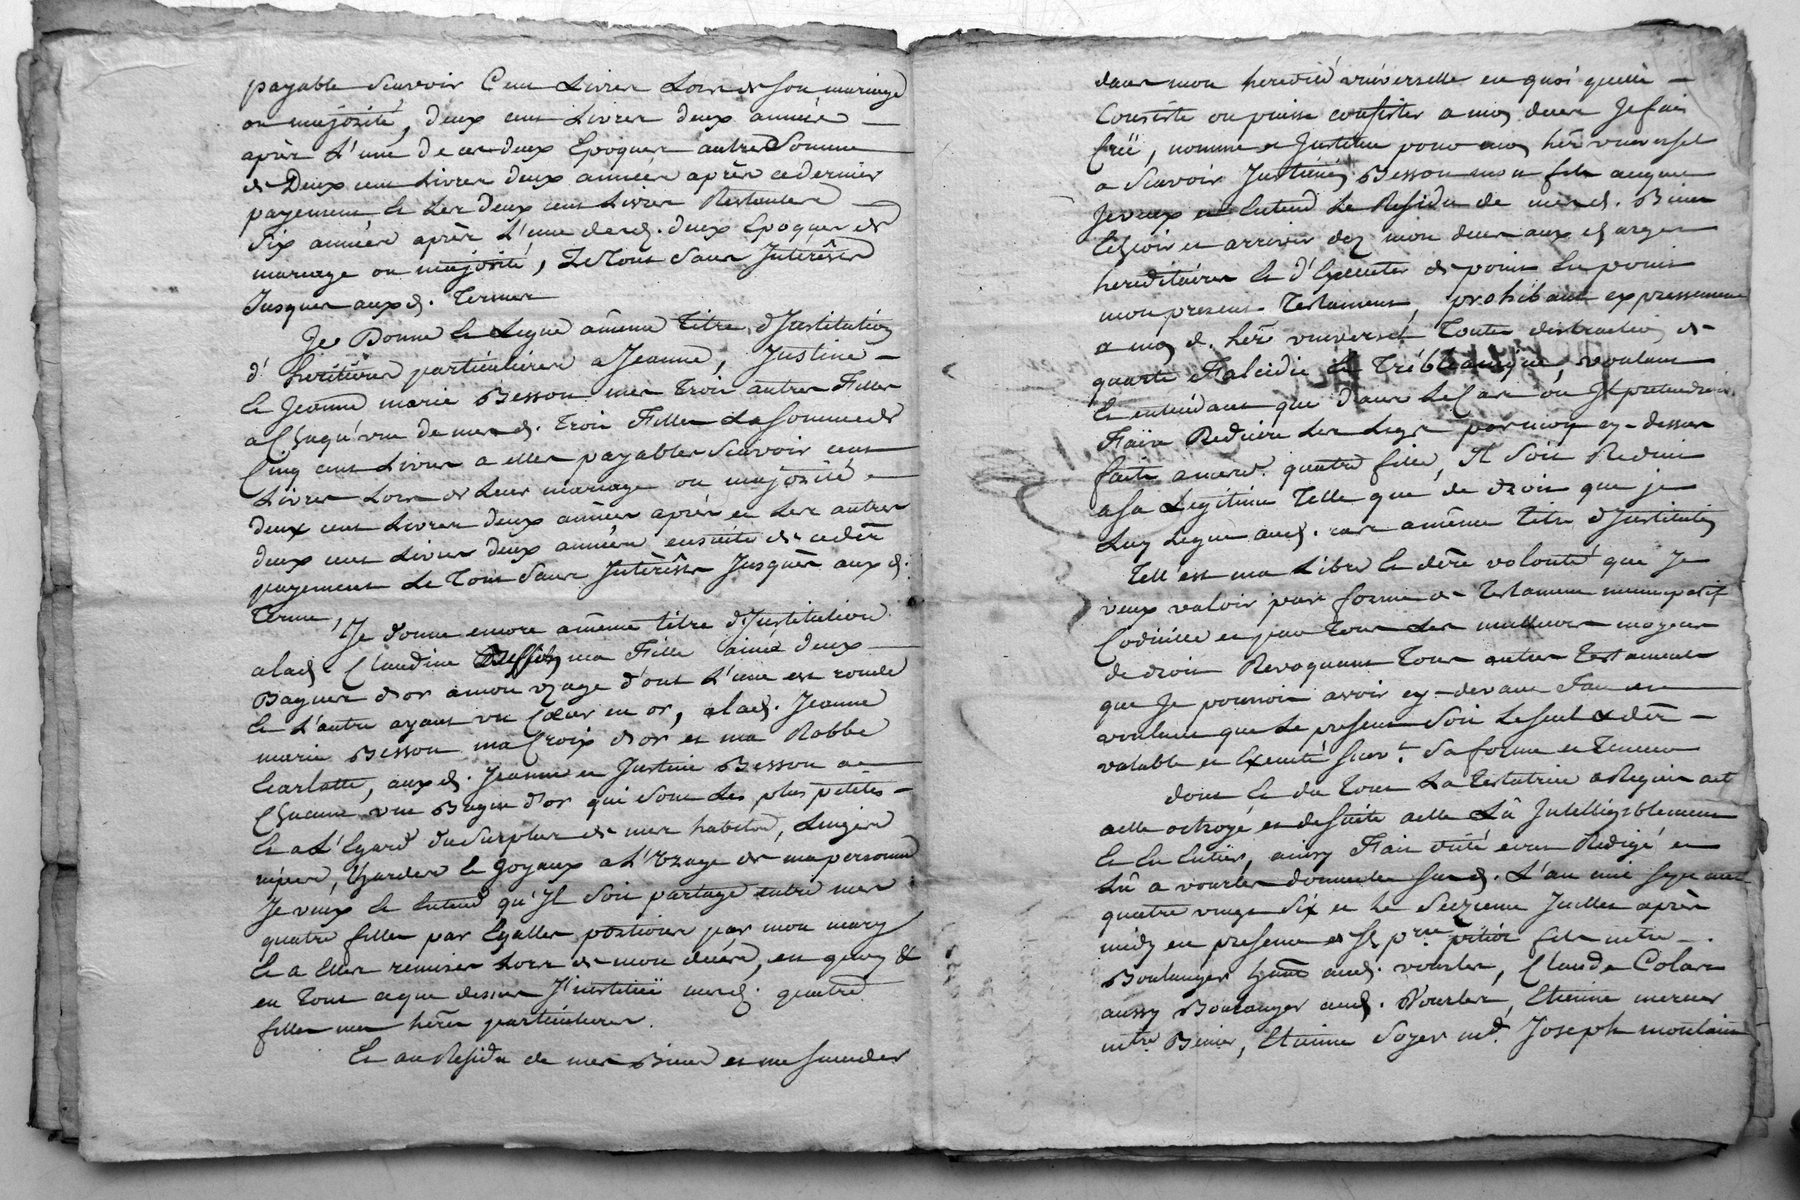 payable Scavoir Cent Livres Lors de son mariage
ou majorité, deux cent Livres deux année
après L'une de ces deux Epoques autres Somme
de Deux cent Livres deux années après ce dernier
payement Et Les deux cent Livres Restantes
Six années après L'une desd. deux Epoques de
mariage ou majorité, Le Tout Sans Intérêts
Jusques auxd. Termes
Je Donne Et Legue a même Titre d'Institution
d'heritières particulières a Jeanne, Justine
Et Jeanne marie Besson mes Trois autres Filles
a Chaqu'une de mesd. Trois Filles La Somme de
Cinq cent Livres a elles payables Scavoir cent
Livres Lors de Leur mariage ou majorité
deux cent Livres deux années après et Les autres
deux cent Livres deux années ensuite de ce der
payement Le Tout Sans Intérêts Jusques auxd.
Terme,
Je donne encore a même titre d'Institution
a lad. Claudine Besson ma Fille ainée deux
Bagues d'or a mon Uzage d'ont L'une est ronde
Et L'autre ayant un Cœur en or, a lad. Jeanne
marie Besson ma Croix d'or et ma Robbe
Ecarlatte, auxd. Jeanne et Justine Besson a
Chacune une Bague d'or qui Sont Les plus petites
Et a L'Egard du Surplus de mes habits, Linges
nipes, hardes Et Joyaux a L'Uzage de ma personne
Je veux Et Entend qu'Il Soit partagé entre mes
quatre filles par Egalles portions par mon mary
Et a Elles remises Lors de mon décès, en quoy &
en Tout ce que dessus J'institüe mesd. quatre
filles mes hères particulieres.
Et au Residu de mes Biens et me Succeder
dans mon heredité universelle en quoi qu'elle
Consiste ou puisse consister a mon deces Je fais
Créé, nomme et Institue pour mon hér universel
a Scavoir Besson mon fils auquel
Je veux et Entend Le Residu de mesd. Biens
Echoir et arriver dez mon deces aux charges
hereditaires Et d'Executer de point En point
mon present Testament, prohibant expressement
a mon d. hér universel Toutes distractions de
quarte Falcidie Et Trébellianique, voulant
Et entendant que dans Le Cas où Il pretendroit
Faire Reduire Les Legs par moy cy-dessus
faits a mesd. quatre filles, Il Soit Reduit
a Sa Legitime Telle que de droit que je
Luy Legue aud. cas a même titre d'Institution
Tell est ma Libre Et dère volonté que Je
veux valoir par forme de Testament nuncupatif
Codicille et par Tous Les meilleurs moyens
de droit Revoquant Tous autres Testaments
que Je pourrois avoir cy-devant Fait et
voulant que Le present Soit Le Seul & dèr
valable et Executé Suivt. Sa forme et Teneur
dont Et du Tout La Testatrice a Requis act
a elle octroyé et de Suite a elle Lû Intelligiblement
Et En Entier, ainsy Fait dicté Redigé et
Lû a Vourles Susd. L'an mil Sept cent
quatre vingt Six et Le Seizieme Juillet après
midy en presence de Sr pre fils mtre
Boulanger aud. Vourles, Claude Colas
aussy Boulanger aud. Vourles, Etienne mercier
mtre Etienne Soyer md. Joseph montain